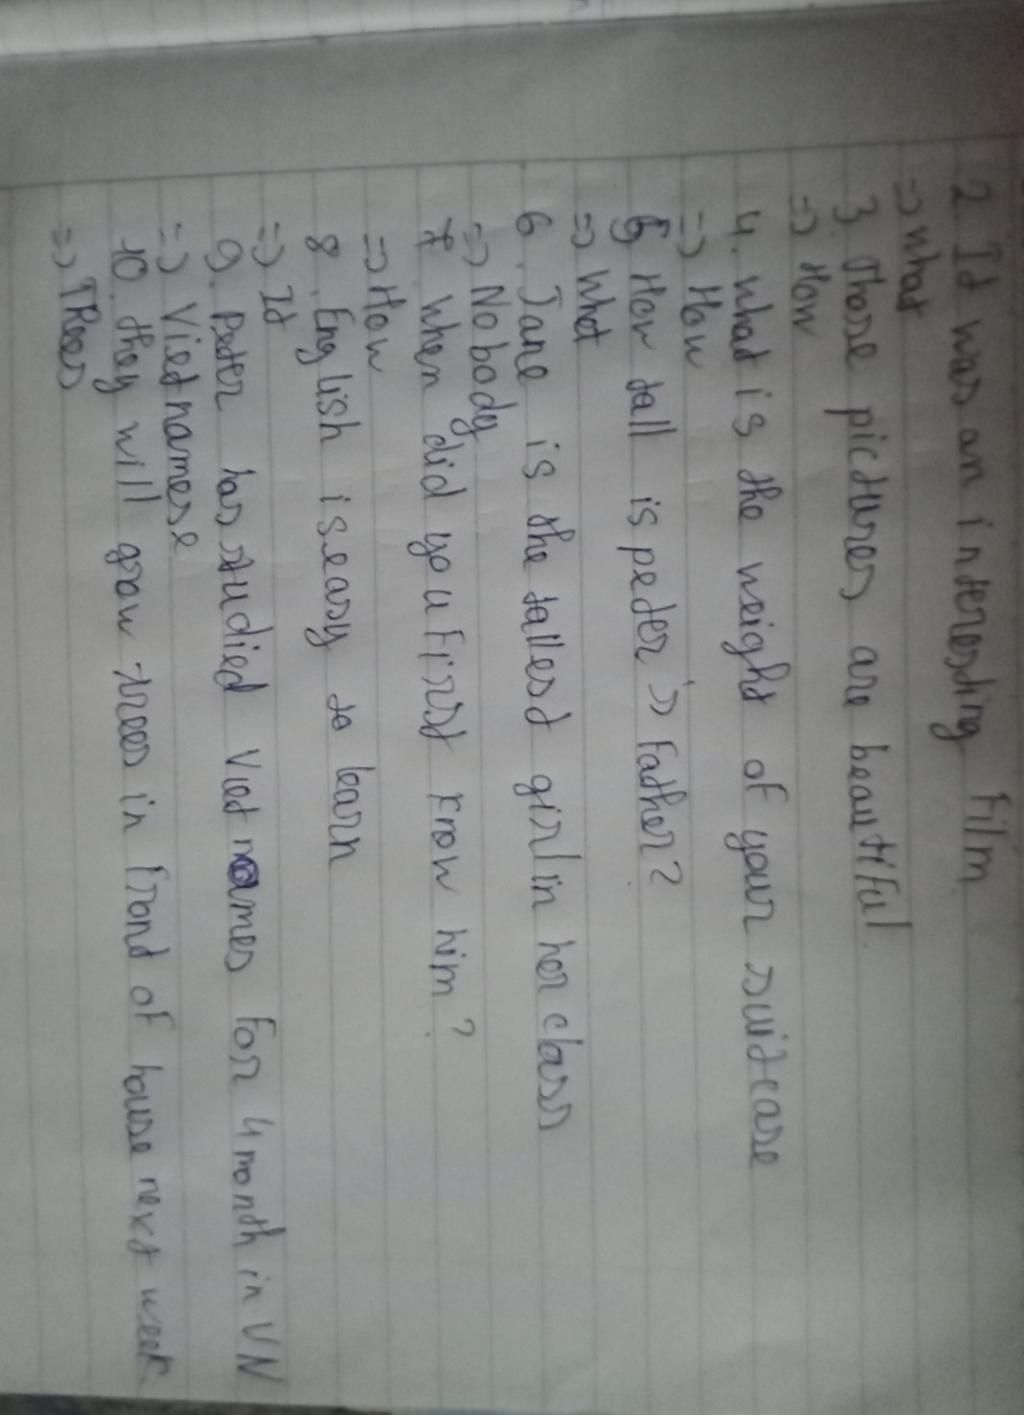 2 It was an interesting film
=> what
3. Those pictures are beautiful.
=> How
4. what is the weight of your suitcase
=> How
5 How tall is peter's Father?
=> What
6. Jane is the tallest girl in her class
=> Nobody
7 When did you First know him?
=> How
8. English is easy to learn
=> It
9. Peter has studied Viet names For 4 month in VN
=> Vietnamese
10. they will grow trees in Front of house next week.
=> TRees